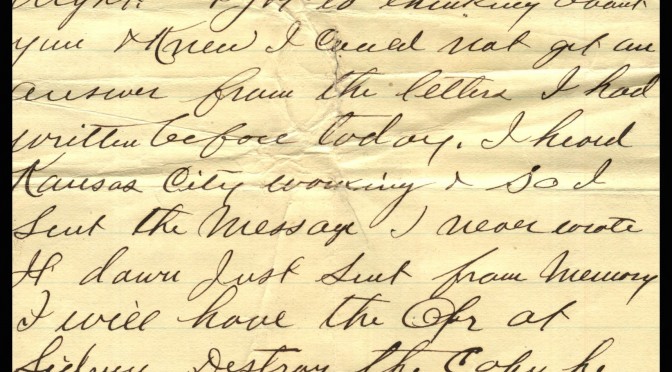 night. I got to thinking about
you & Knew I could not get an
answer from the letters I had
written before today. I heard
Kansas City working & so I
Sent the Message I never wrote
It down Just Sent from Memory
I will have the Opr at
Sidney Destroy the Copy he